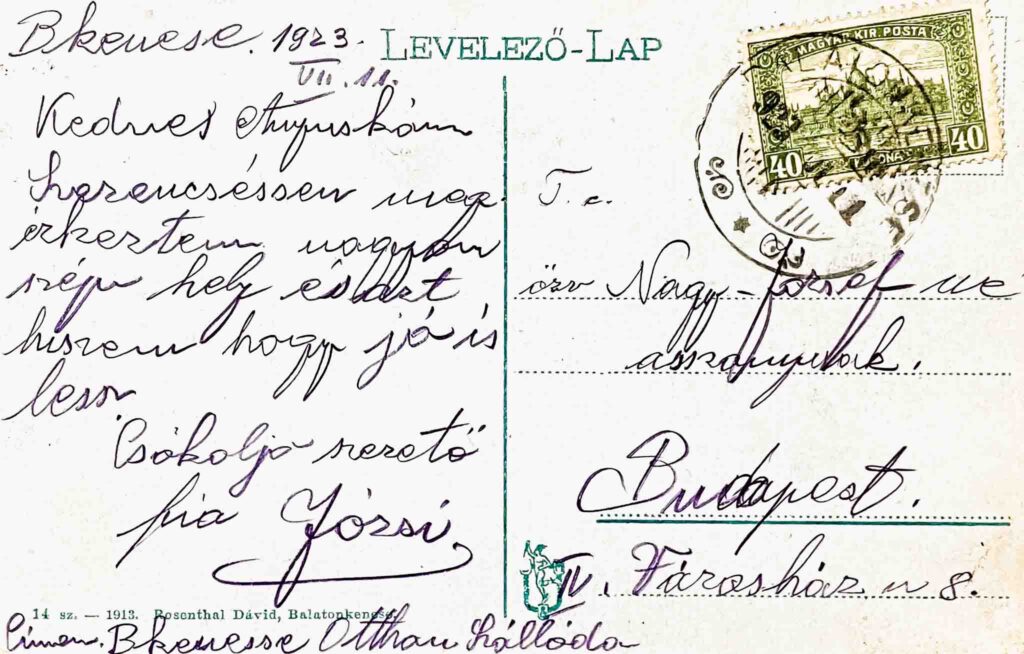 Bkenese. 1923.
VII. 11.
LEVELEZŐ-LAP
Kedves Anyuskám
Szerencséssen meg
érkeztem nagyon
szép hely és azt
hiszem hogy jó is
lessz
Csókolja szerető
fia Józsi
14 sz. — 1913. Rosenthal Dávid, Balatonkenese.
Címem. Bkenesse Otthon Szálloda
MAGYAR KIR. POSTA
40 40
T. c.
özv Nagy József né
asszonynak.
Budapest.
IV. Városház u 8.